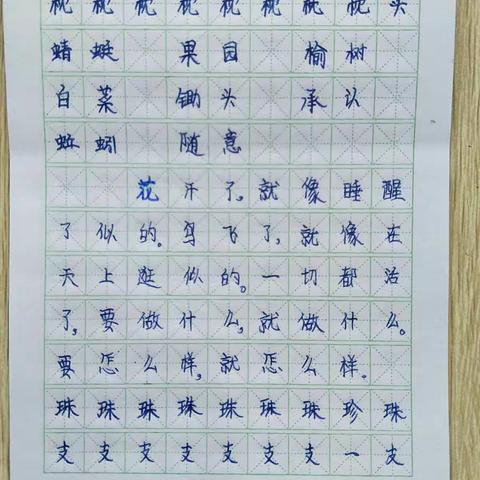 枕枕枕枕枕枕枕枕头
蜻蜓 果园 榆树
白菜 锄头 承认
蚯蚓 随意
花开了。就像睡醒
了似的。鸟飞了,就像在
天上逛似的。一切都活
了,要做什么,就做什么。
要怎么样,就怎么样。
珠珠珠珠珠珠珠珍珠
支支支支支支支一支